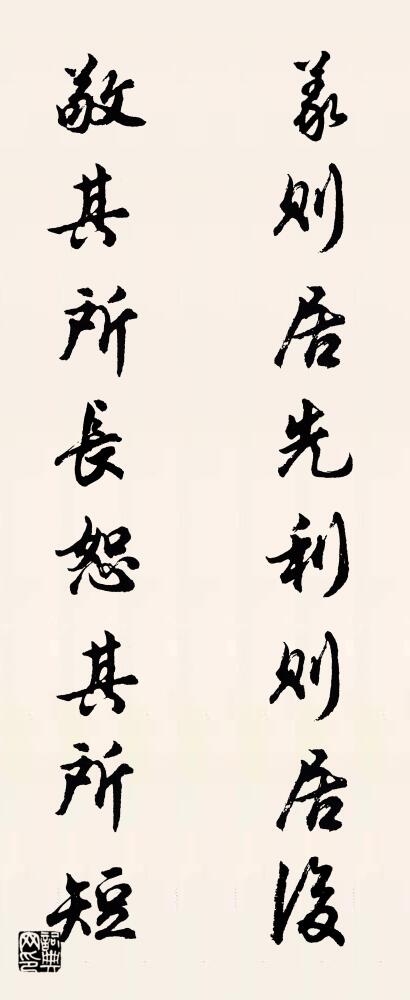 義則居先利則居後
敬其所長恕其所短
詞典网印